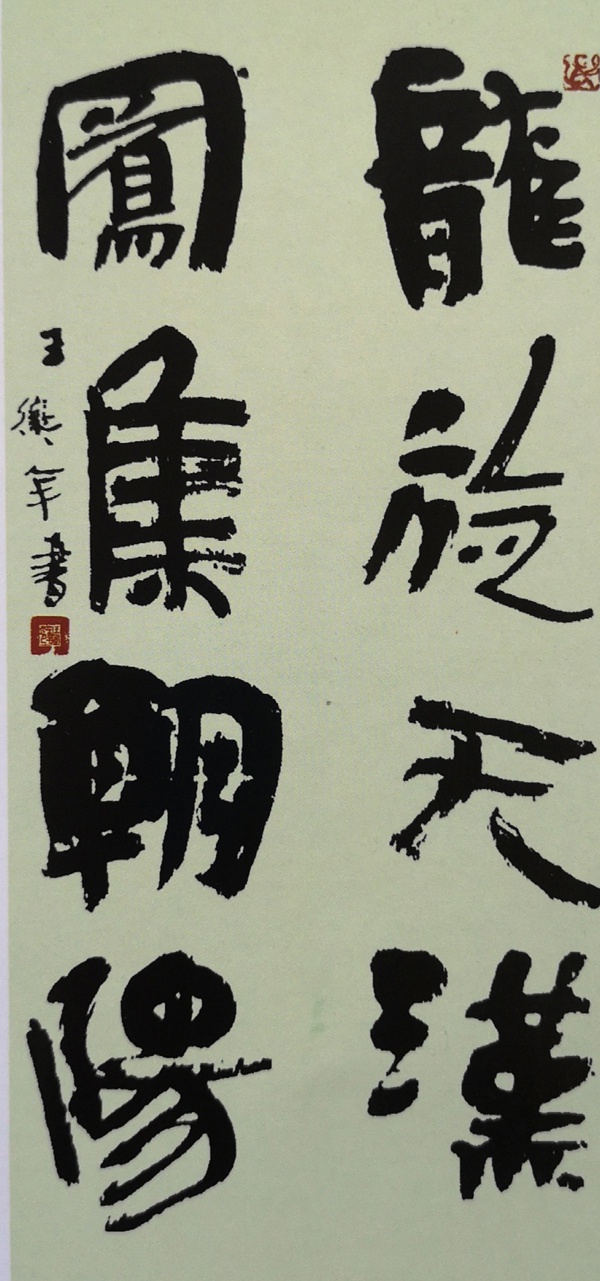 龍旋天漢
鳳集朝陽
王年書